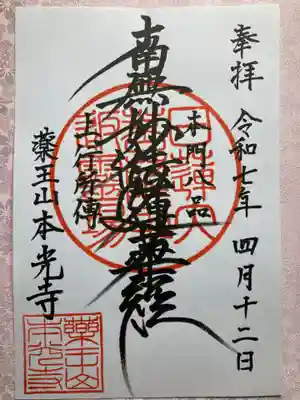 奉拝 令和七年四月十二日
本門八品
南無妙法蓮華経
上行所傳
薬王山本光寺